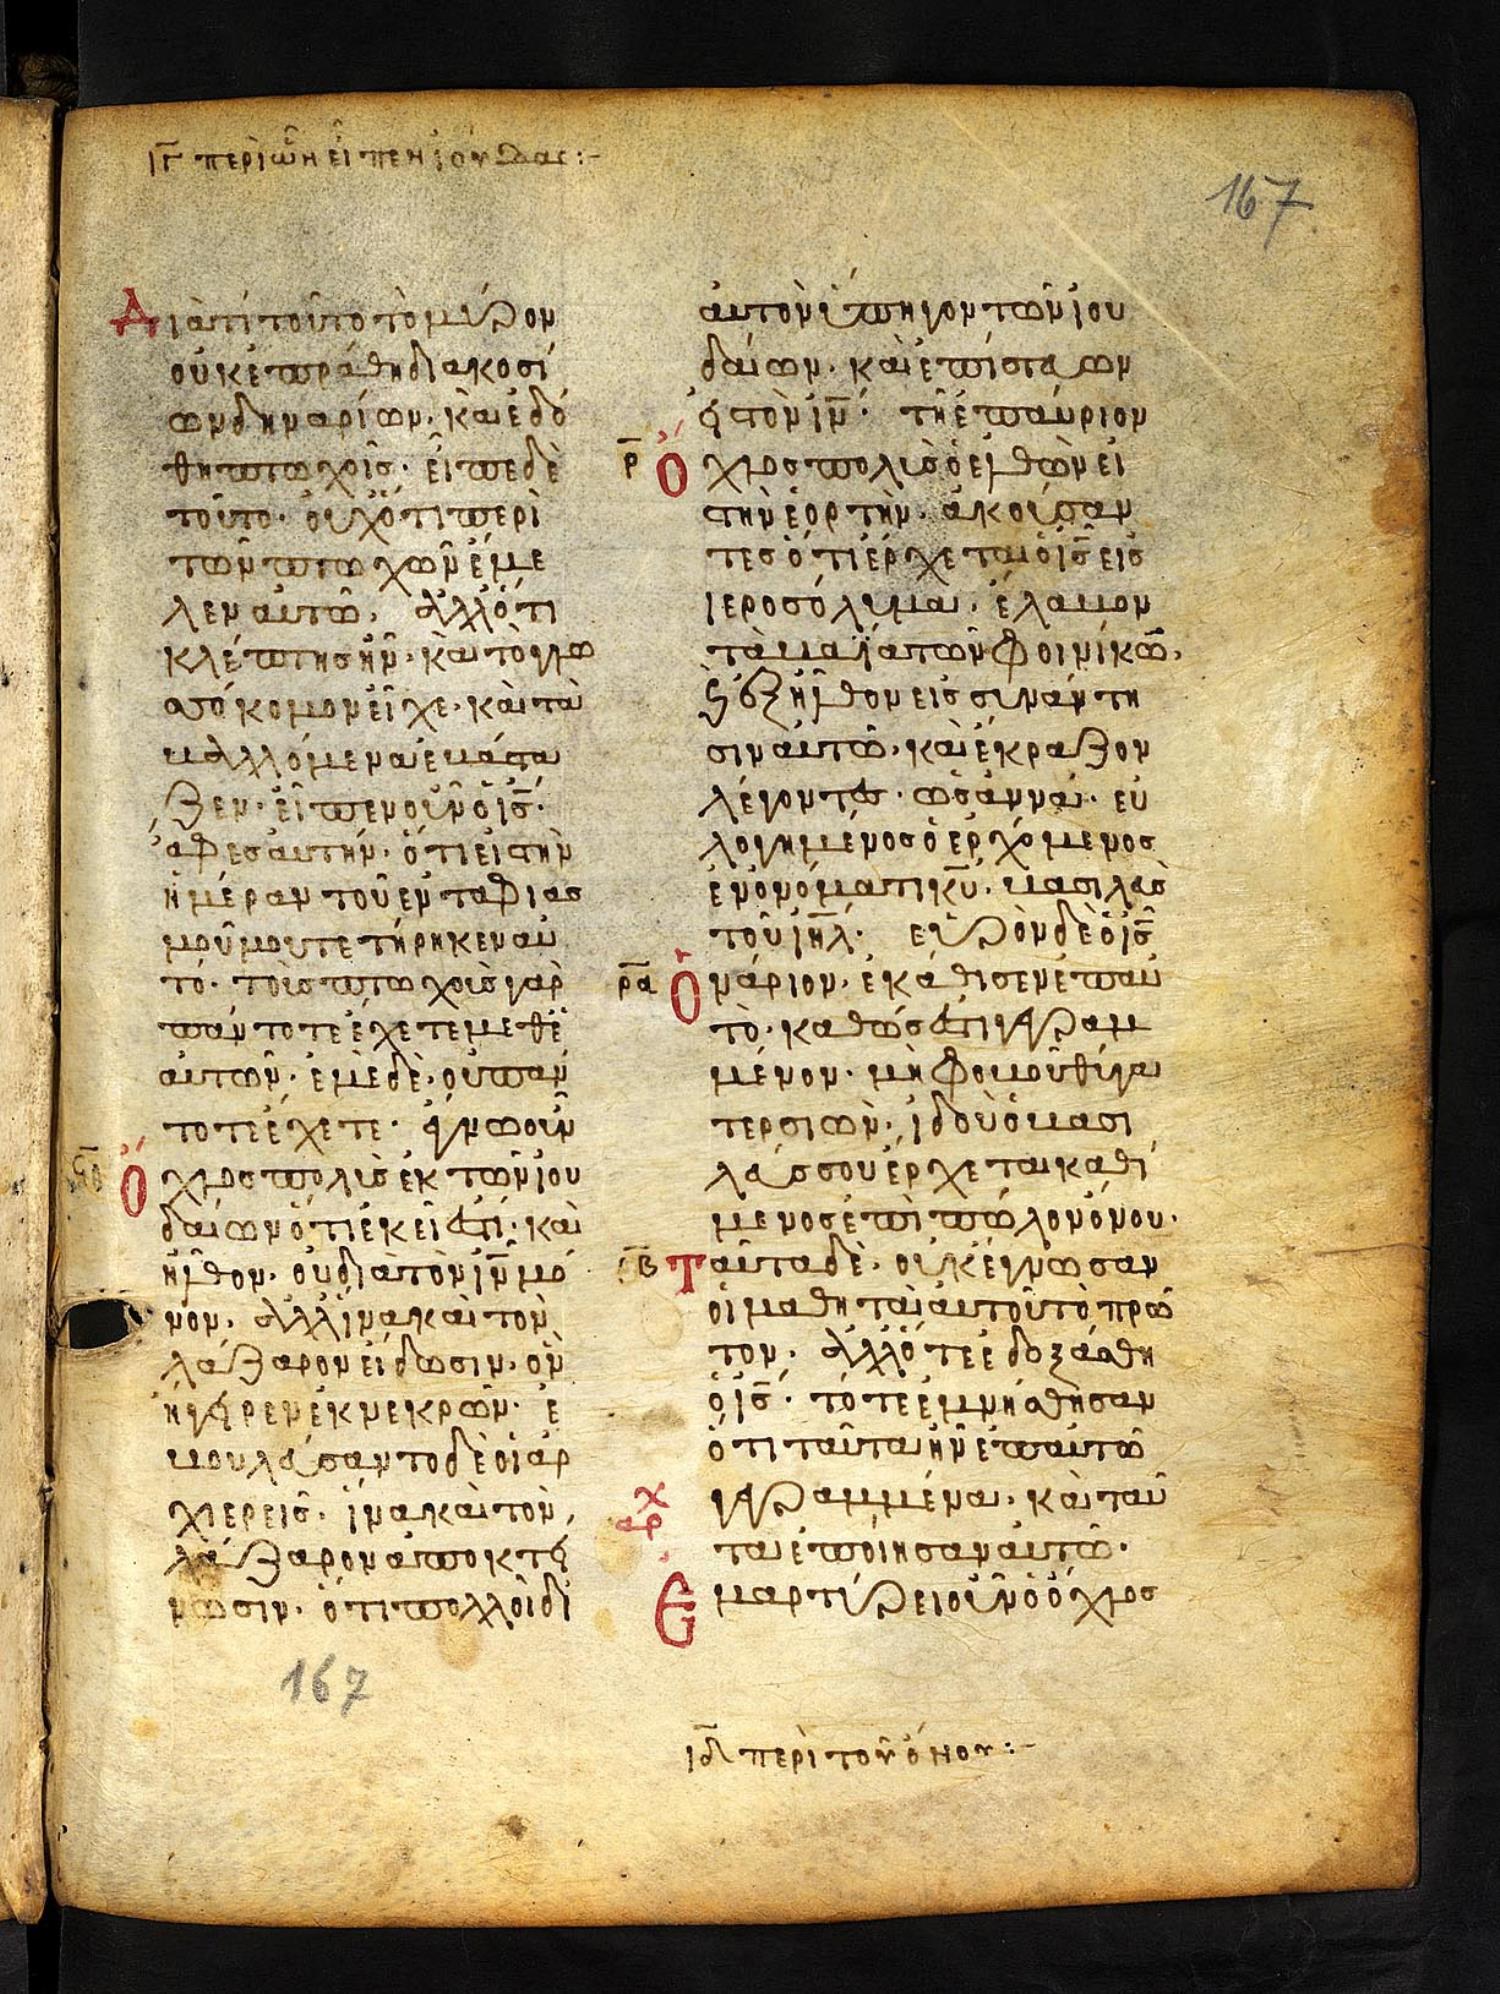 ιγ περὶ ὧν εἶπεν ἰούδας:-
167
Διατί τοῦτο τὸ μύρον
οὐκ ἐπράθη διακοσί
ων δηναρίων· καὶ ἐδό
θη πτωχοῖς· εἶπε δὲ
τοῦτο· οὐχ ὅτι περὶ
τῶν πτωχῶν ἔμε
λεν αὐτῶ· ἀλλ ὅτι
κλέπτης ἦν· καὶ τὸ γλω
σσόκομον εἶχε· καὶ τὰ
βαλλόμενα ἐβάστα
ζεν· εἶπεν οὖν ὁ ις·
ἄφες αὐτήν· ὅτι εἰς τὴν
ἡμέραν τοῦ ἐνταφιασ
μοῦ μου τετήρηκεν αὐ
τό· τοὺς πτωχοὺς γὰρ
πάντοτε ἔχετε μεθ ἑ
αυτῶν· ἐμὲ δὲ· οὐ πάν
τοτε ἔχετε· ἔγνω οὖν
ὄχλος πολὺς ἐκ τῶν ἰου
δαίων ὅτι ἐκεῖ ἐστι· καὶ
ἦλθον· οὐ διὰ τὸν ιν μό
νον· ἀλλ ἵνα καὶ τὸν
λάζαρον εἴδωσιν· ὃν
ἤγειρεν ἐκ νεκρῶν· ἐ
βουλεύσαντο δὲ οἱ ἀρ
χιερεῖς· ἵνα καὶ τὸν
λάζαρον ἀποκτεί
νωσιν· ὅτι πολλοὶ δι
167
αὐτὸν ὑπῆγον τῶν ἰου
δαίων· καὶ ἐπίστευον
εἰς τὸν ιν· τῆ ἐπαύριον
ρ ὄχλος πολὺς ὁ ἐλθὼν εἰ
ς τὴν ἑορτὴν· ἀκούσαν
τες ὅτι ἔρχεται ὁ ις εἰς
ἱεροσόλυμα· ἔλαβον
τὰ βαΐα τῶν φοινίκων·
καὶ ἐξῆλθον εἰς συνάντη
σιν αὐτῶ· καὶ ἔκραζον
λέγοντες· ὡσάννα· εὐ
λογημένος ὁ ἐρχόμενος
ἐν ὀνόματι κυ· βασιλεὺς
τοῦ ιηλ· εὑρὼν δὲ ὁ ις
ρα ὀνάριον· ἐκάθισεν ἐπ αὐ
τὸ· καθώς ἐστι γεγραμ
μένον· μὴ φοβοῦ θύγα
τερ σιών· ἰδοὺ ὁ βασι
λεύς σου ἔρχεται καθή
μενος ἐπὶ πῶλον ὄνου·
ρβ Ταῦτα δὲ· οὐκ ἔγνωσαν
οἱ μαθηταὶ αὐτοῦ τὸ πρῶ
τον· ἀλλ ὅτε ἐδοξάσθη
ὁ ις· τότε ἐμνήσθησαν
ὅτι ταῦτα ἦν ἐπ αὐτῶ
γεγραμμένα· καὶ ταῦ
τα ἐποίησαν αὐτῶ·
Ἐμαρτύρει οὖν ὁ ὄχλος
ιδ περὶ τοῦ ὄνου:-